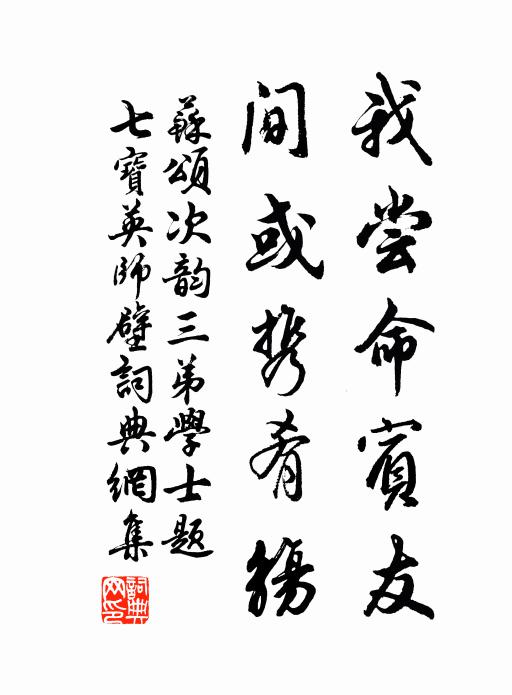 我尝命賓友
间或携肴觞
蘇頌次韵三弟學士题
七寶英師壁詞典網集
詞典网印